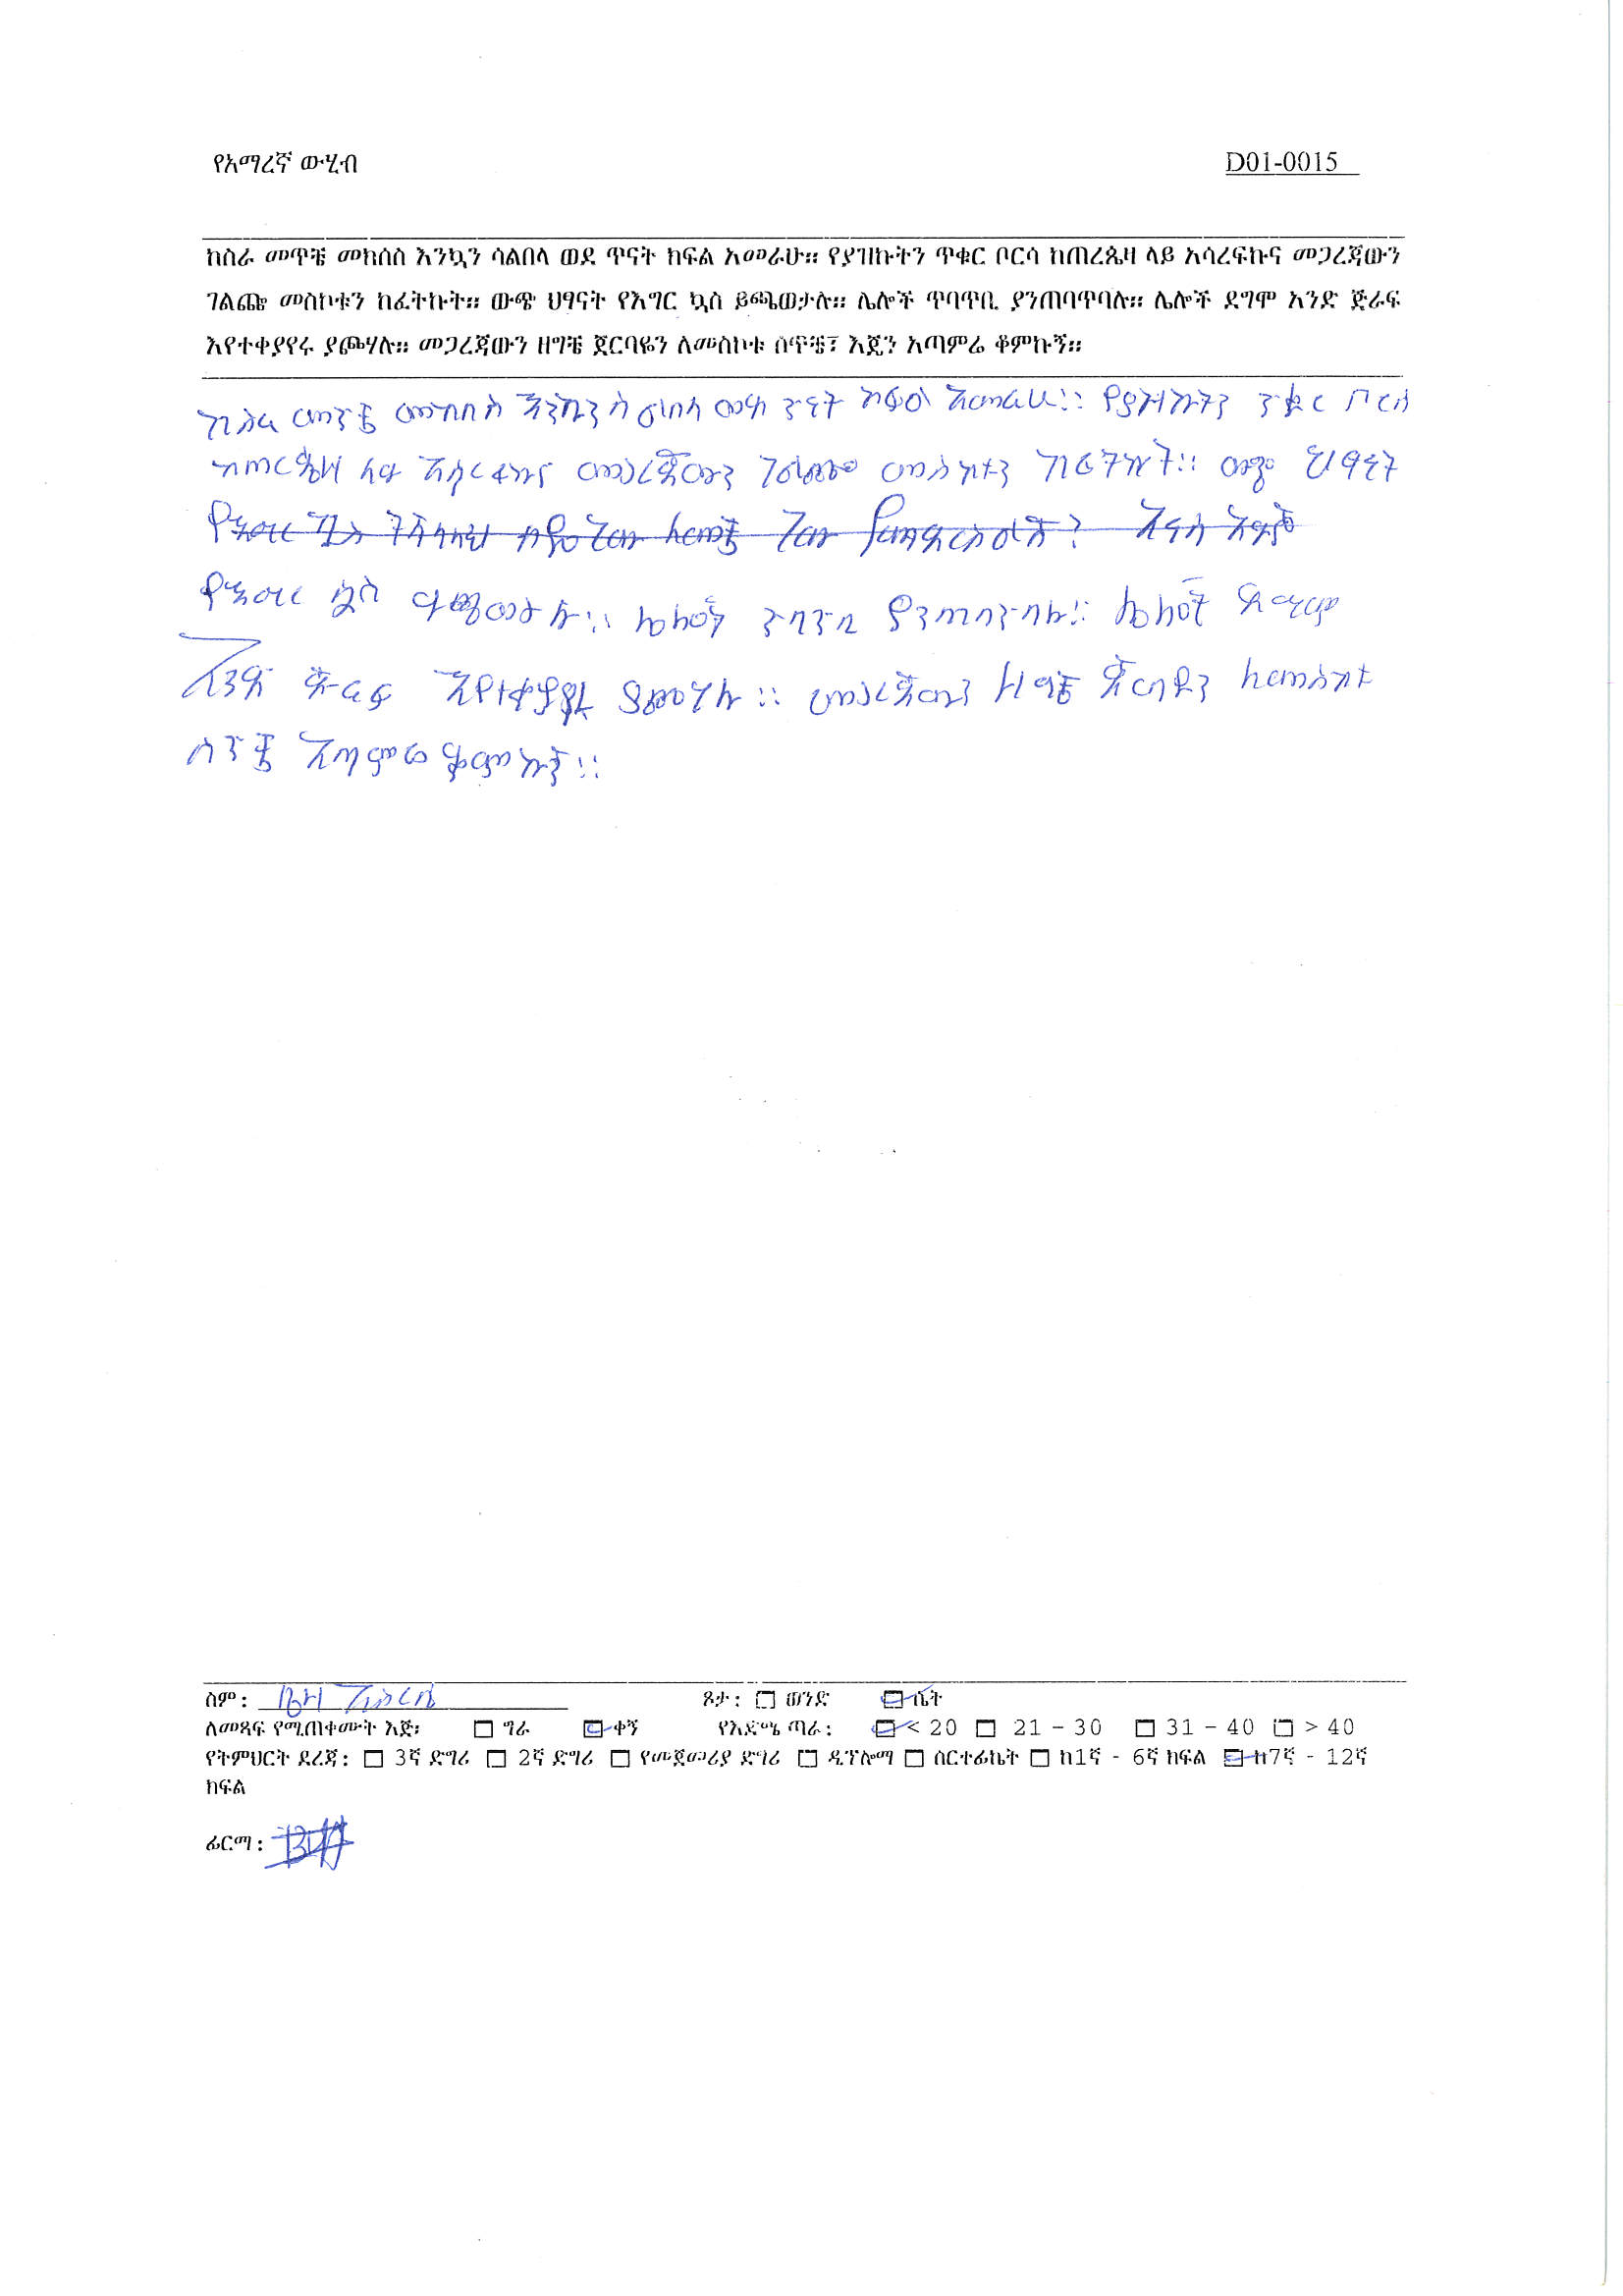 የአማረኛ ውሂብ D01-0015
ከስራ መጥቼ መክሰስ እንኳን ሳልበላ ወደ ጥናት ክፍል አመራሁ። የያዝኩትን ጥቁር ቦርሳ ከጠረጴዛ ላይ አሳረፍኩና መጋረጃውን
ገልጬ መስኮቱን ከፈትኩት። ውጭ ህፃናት የእግር ኳስ ይጫወታሉ። ሌሎች ጥባጥቢ ያንጠባጥባሉ። ሌሎች ደግሞ አንድ ጅራፍ
እየተቀያየሩ ያጮሃሉ። መጋረጃውን ዘግቼ ጀርባዬን ለመስኮቱ ሰጥቼ፣ እጄን አጣምሬ ቆምኩኝ።
ከስራ መጥቼ መክሰስ እንኳን ሳልበላ ወደ ጥናት ክፍል አመራሁ። የያዝኩትን ጥቁር ቦርሳ
ከጠረጴዛ ላይ አሳረፍኩና መጋረጃውን ገልጬ መስኮቱን ከፈትኩት። ውጭ ህፃናት
የእግር ኳስ ይጫወታሉ። ሌሎች ጥባጥቢ ያንጠባጥባሉ። ሌሎች ደግሞ
አንድ ጅራፍ እየተቀያየሩ ያጮሃሉ። መጋረጃውን ዘግቼ ጀርባዬን ለመስኮቱ
ሰጥቼ አጣምሬ ቆምኩኝ።
ስም: ፆታ: ወንድ ሴት
ለመጻፍ የሚጠቀሙት እጅ: ግራ ቀኝ የእድሜ ጣራ: < 20 21 - 30 31 - 40 > 40
የትምህርት ደረጃ: 3ኛ ድግሪ 2ኛ ድግሪ የመጀመሪያ ድግሪ ዲፕሎማ ሰርተፊኬት ከ1ኛ - 6ኛ ክፍል ከ7ኛ - 12ኛ
ክፍል
ፊርማ: